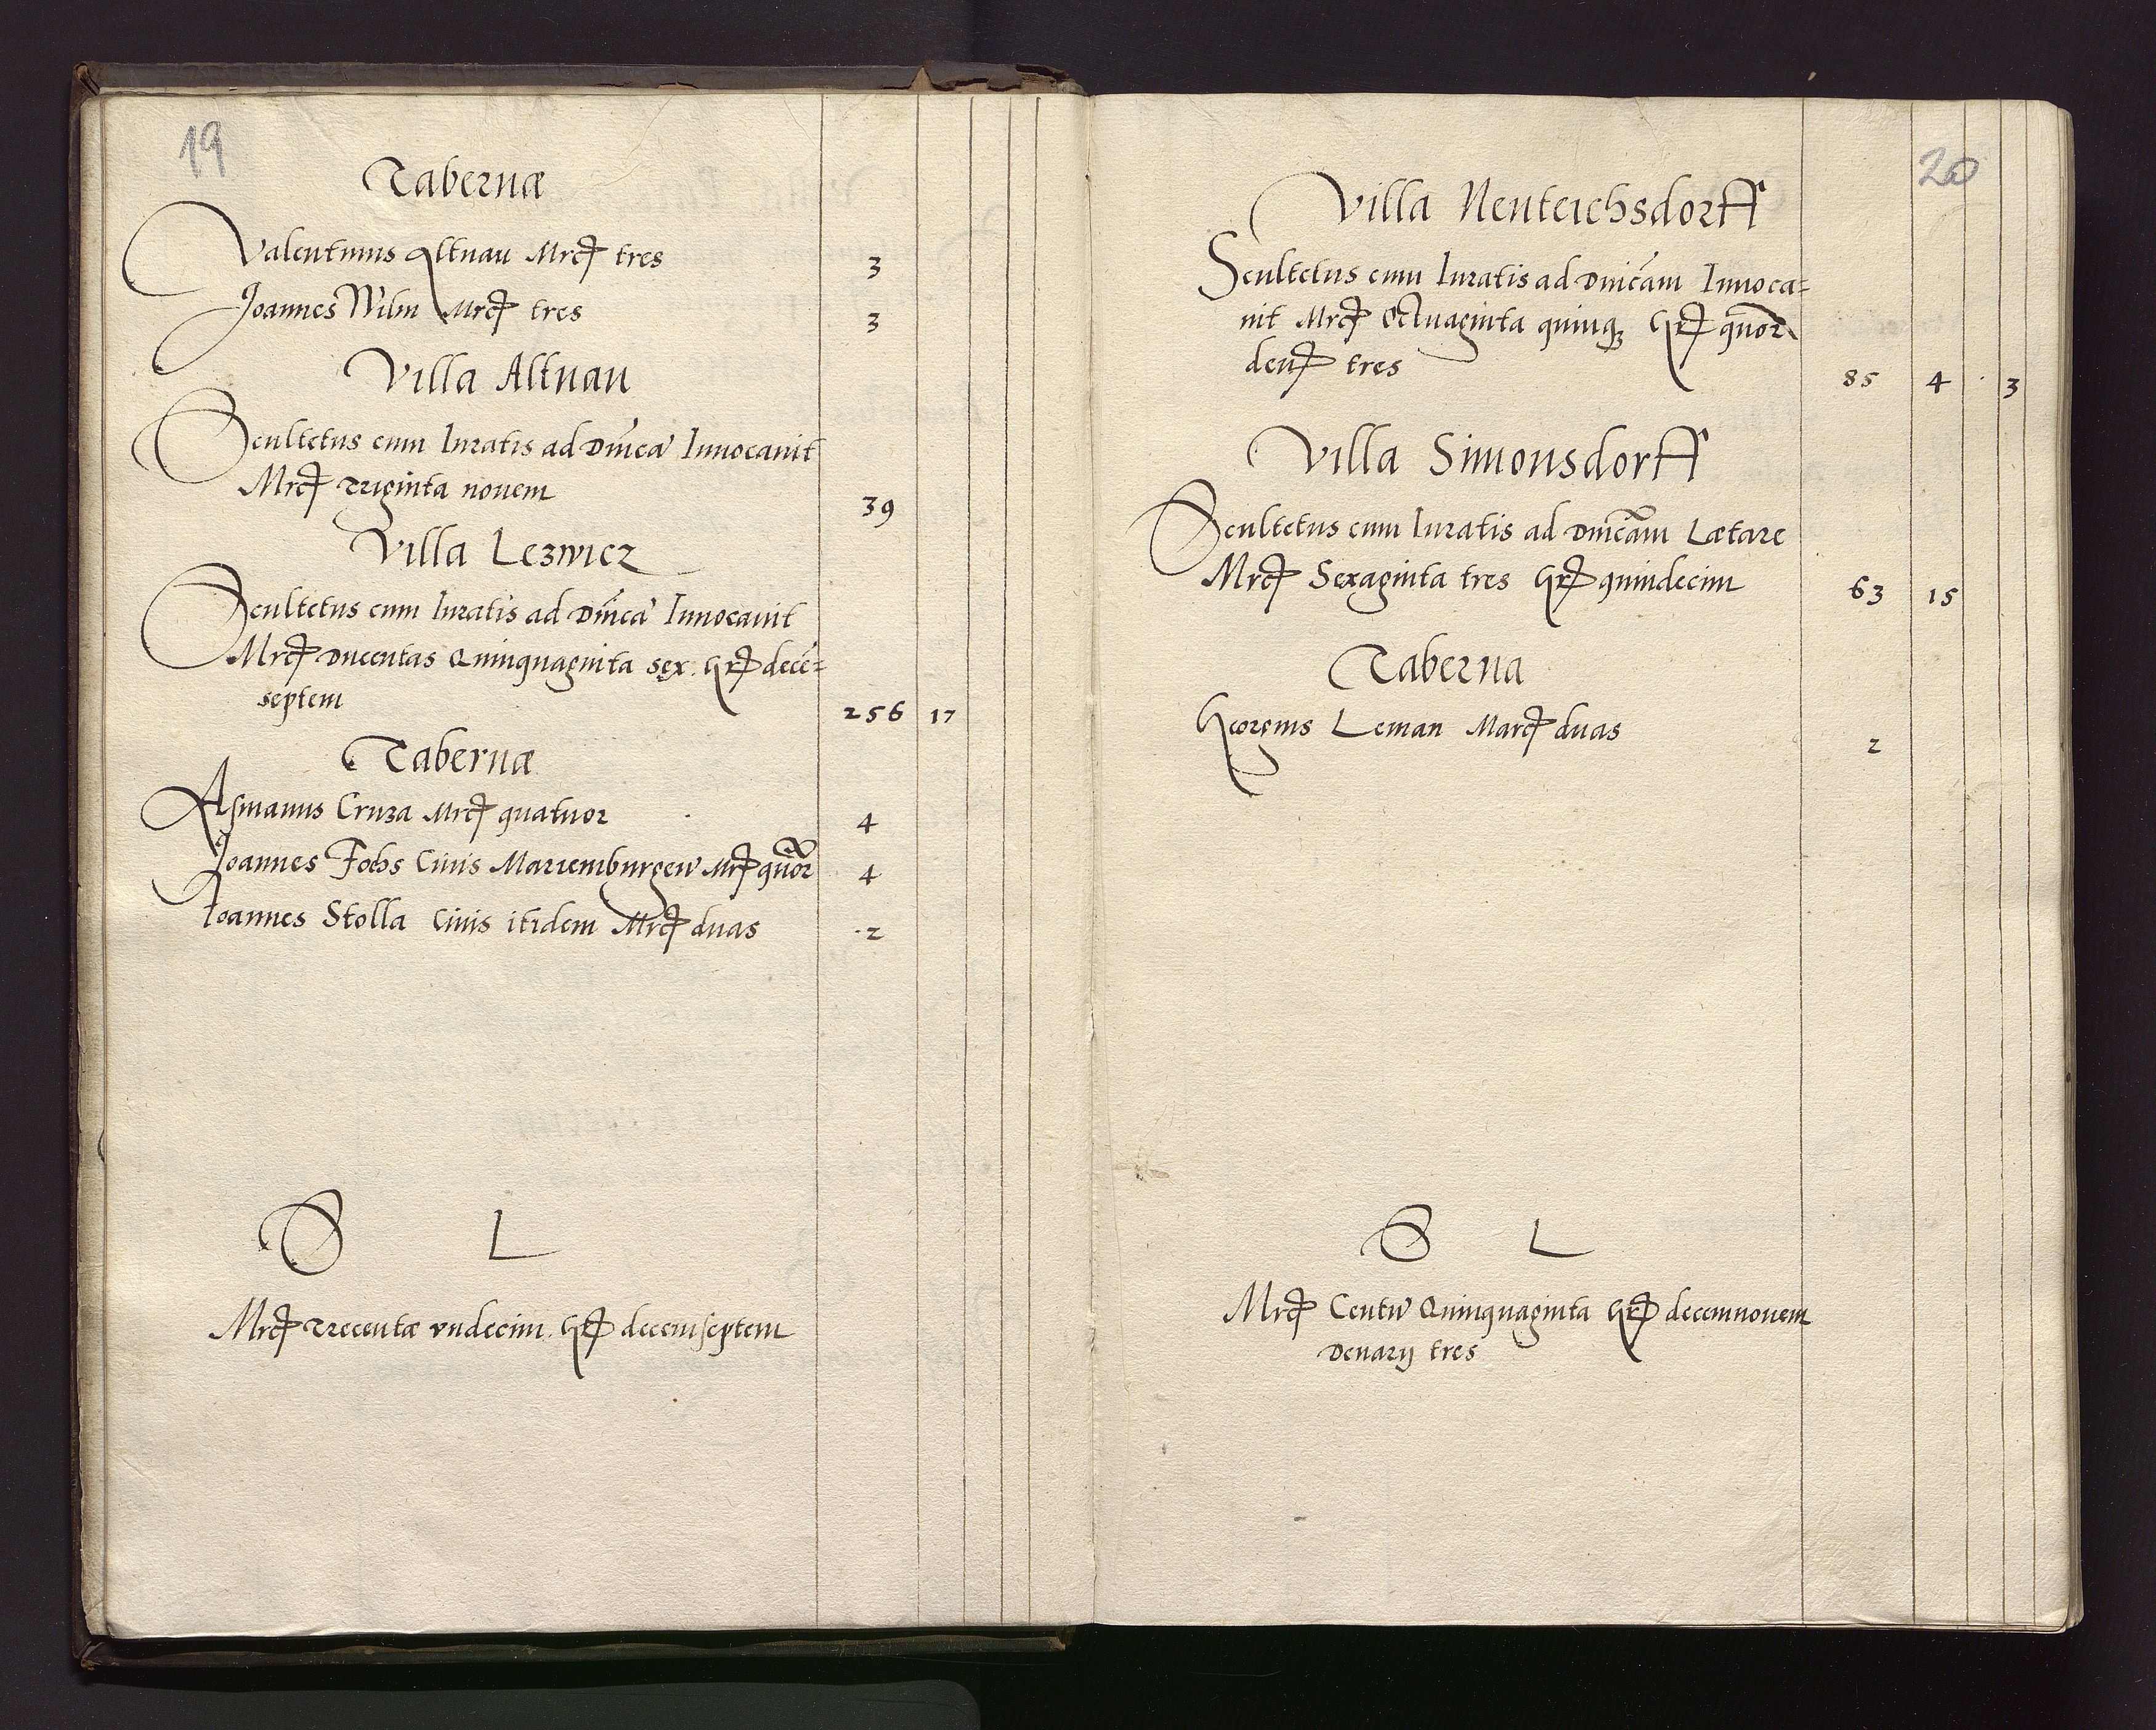 19
Tabernæ
Valentinus Altnau Mrcꝭ tres 3
Joannes Wilm Mrcꝭ tres 3
Villa Altnau
Scultetus cum Iuratis ad Dnicā Inuocauit
Mrcꝭ Triginta nouem 39
Villa Lezwicz
Scultetus cum Iuratis ad Dnicā Inuocauit
Mrcꝭ Ducentas Quinquaginta sex. Grꝭ decē=
septem 256 17
Tabernæ
Asmanus Cruza Mrcꝭ quatuor 4
Joannes Fochs Ciuis Mariemburgeñ Mrꝭ quor 4
Ioannes Stolla Ciuis itidem Mrcꝭ duas 2
S L
Mrcꝭ Trecentæ vndecim. Grꝭ decemseptem
20
Villa Neuteichsdorff
Scultetus cum Iuratis ad Dnicam Inuoca=
uit Mrcꝭ Octuaginta quinqꝫ Grꝭ quor
denꝭ tres 85 4 3
Villa Simonsdorff
Scultetus cum Iuratis ad Dnicam Lætare
Mrcꝭ Sexaginta tres Grꝭ quindecim 63 15
Taberna
Georgius Leman Marcꝭ duas 2
S L
Mrcꝭ Centū Quinquaginta Grꝭ decemnouem
Denarij tres